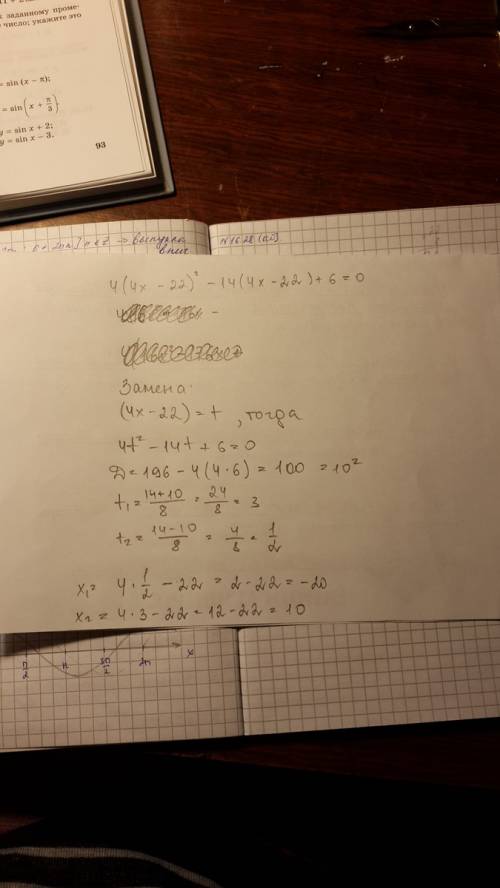 к заданному проме-
число; укажите это
= sin (x − π);
= sin(x + π/3)
y = sin x + 2;
y = sin x − 3.
93
n∈Z → выпукла
вниз
4(4x − 22)² − 14(4x − 22) + 6 = 0
Замена:
(4x − 22) = t, тогда
4t² − 14t + 6 = 0
D = 196 − 4(4·6) = 100 = 10²
t₁ = (14+10)/8 = 24/8 = 3
t₂ = (14−10)/8 = 4/8 = 1/2
x₁ = 4·1/2 − 22 = 2 − 22 = −20
x₂ = 4·3 − 22 = 12 − 22 = 10
π/2 π 3π/2 2π x